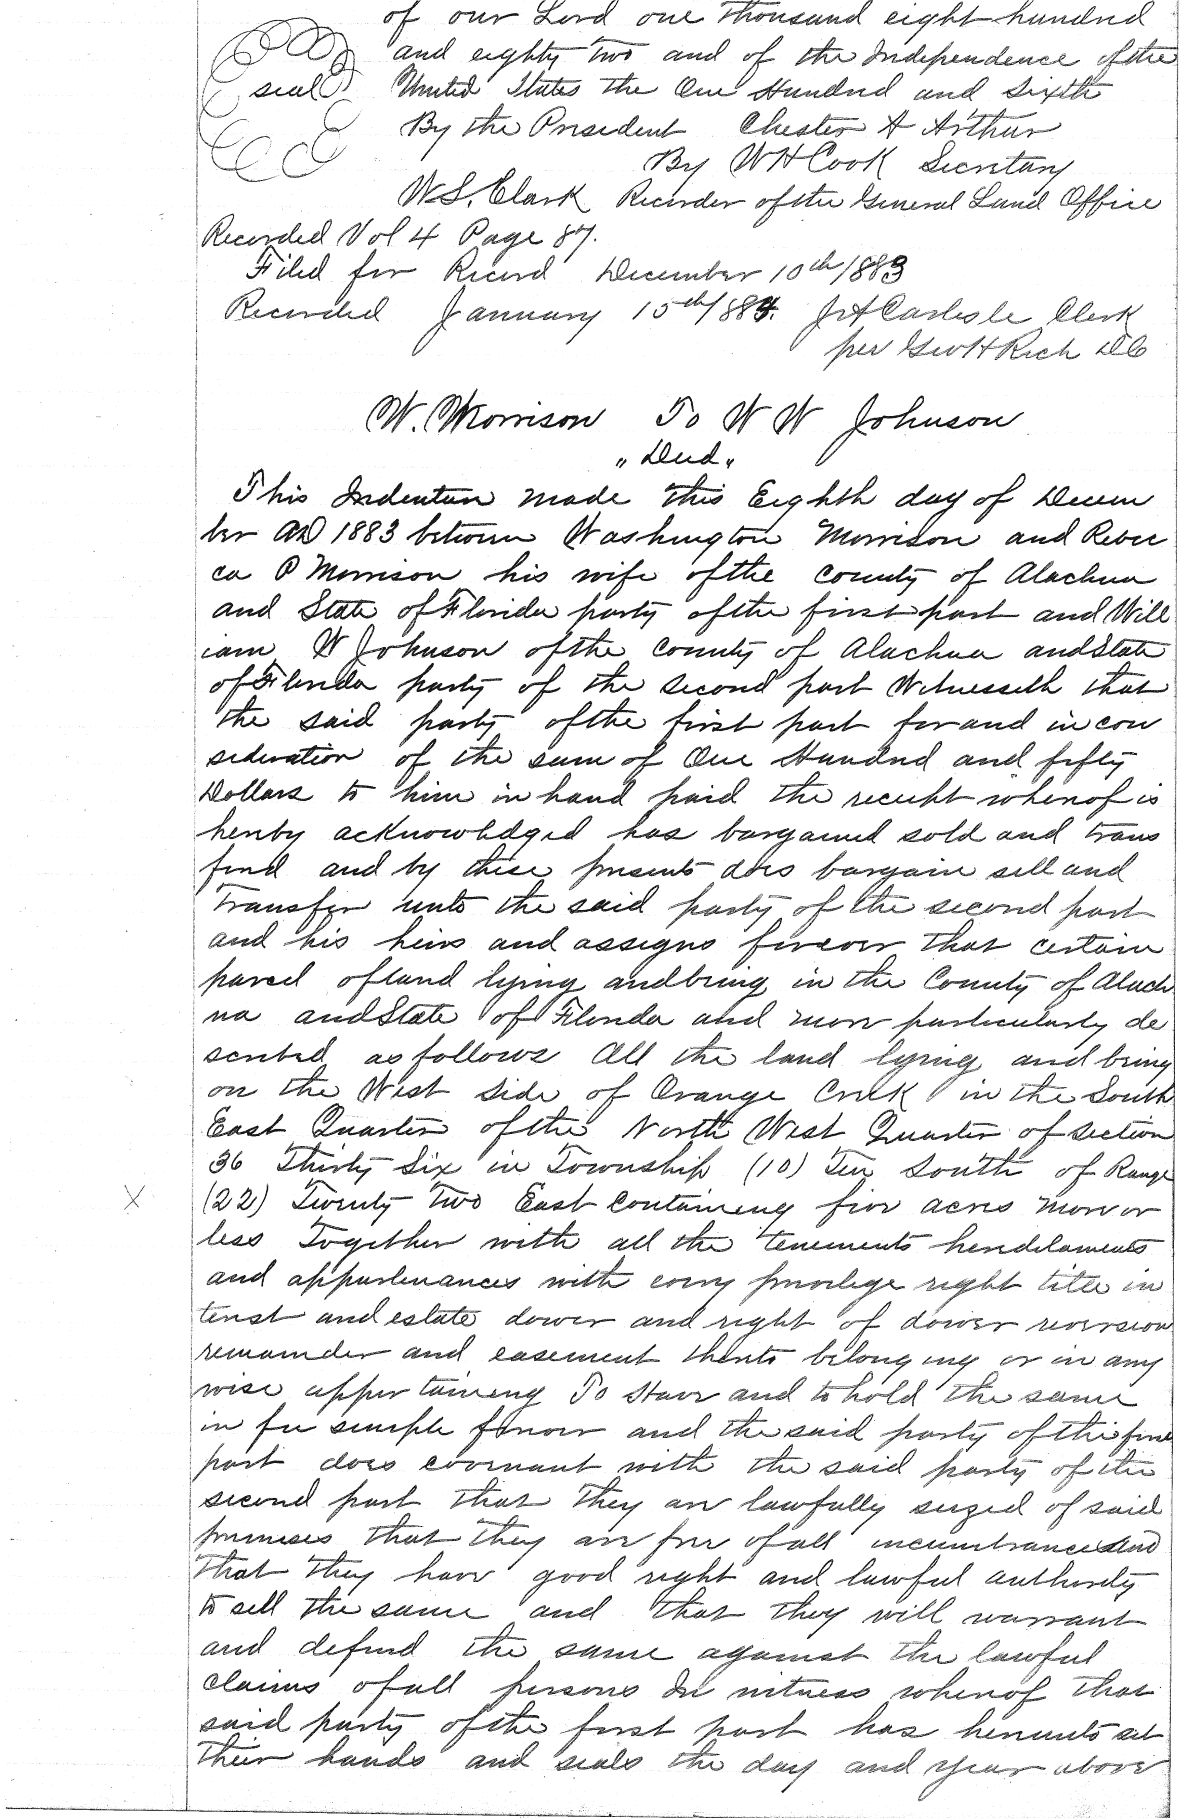 of our Lord one thousand eight hundred
and eighty two and of the Independence of the
seal United States the One Hundred and Sixth
By the President Chester A Arthur
By W H Cook Secretary
W. S. Clark Recorder of the General Land Office
Recorded Vol 4 Page 87.
Filed for Record December 10th 1883
Recorded January 15th 1884. J A Carlisle Clerk
per Geo H Rich DC
W. Morrison To W W Johnson
" Deed "
This Indenture made this Eighth day of Decem
ber AD 1883 between Washington Morrison and Rebec
ca P Morrison his wife of the County of Alachua
and State of Florida party of the first part and Will
iam W Johnson of the County of Alachua and State
of Florida party of the second part Witnesseth that
the said party of the first part for and in con
sideration of the sum of One Hundred and fifty
Dollars to him in hand paid the receipt whereof is
hereby acknowledged has bargained sold and trans
fered and by these presents does bargain sell and
Transfer unto the said party of the second part
and his heirs and assigns forever that certain
parcel of land lying and being in the County of Alach
ua and State of Florida and more particularly de
scribed as follows All the land lying and being
on the West side of Orange Creek in the South
East Quarter of the North West Quarter of Section
36 Thirty Six in Township (10) Ten South of Range
(22) Twenty Two East containing five acres more or
less Together with all the tenements heredilaments
and appurtenances with every privilege right title in
terest and estate dower and right of dower reversion
remainder and easement thereto belonging or in any
wise appertaining To Have and to hold the same
in fee simple forever and the said party of the first
part does covenant with the said party of the
second part that they are lawfully seized of said
premises that they are free of all incumbrances and
that they have good right and lawful authority
to sell the same and that they will warrant
and defend the same against the lawful
claims of all persons In witness whereof that
said party of the first part has hereunto set
their hands and seals the day and year above
X